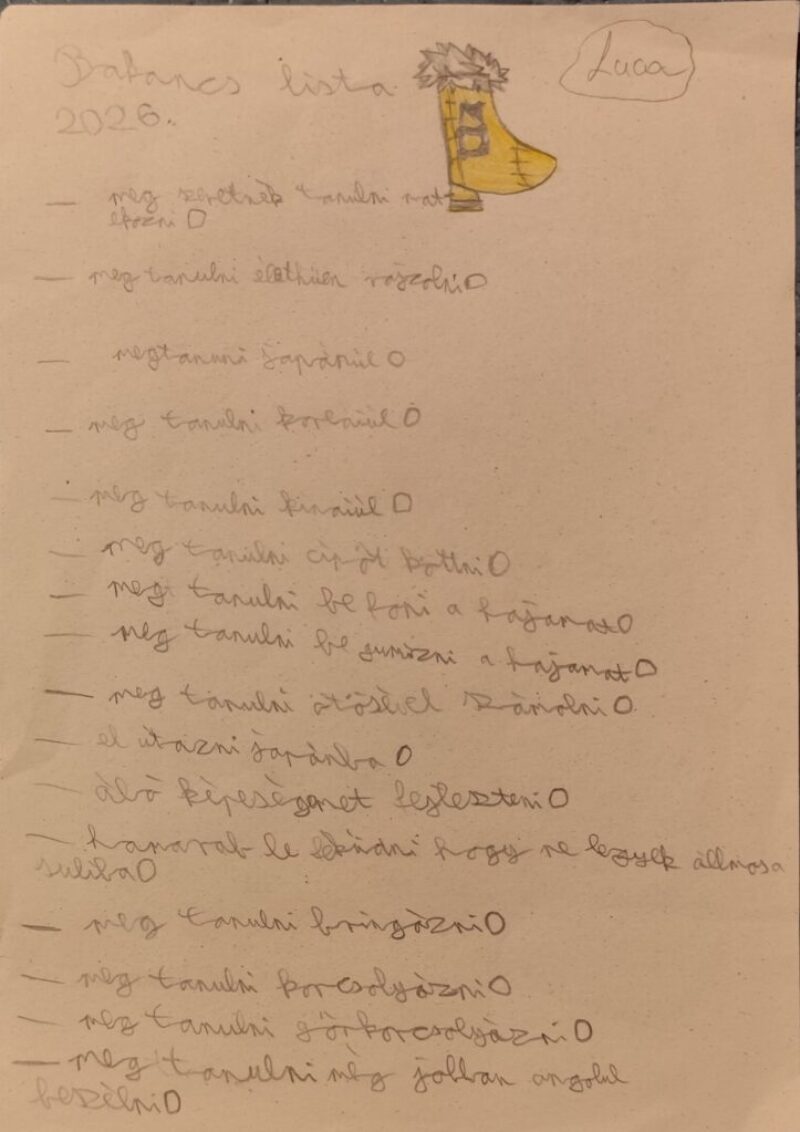 Bakancs lista
Luca
2026.
— meg szeretnék tanulni mat-
ekozni O
— meg tanulni élethüen rajzolni O
— megtanuni japánúl O
— meg tanulni koreaiúl O
— meg tanulni kinaiúl O
— meg tanulni cipőt kőttni O
— meg tanulni be foni a hajamat O
— meg tanulni be gumizni a hajamat O
— meg tanulni ötösével számolni O
— el utazni japánba O
— álló képeségemet fejleszteni O
— hamarab le feküdni hogy ne legyek állmosa
suliba O
— meg tanulni bringázni O
— meg tanulni korcsolyázni O
— meg tanulni görkorcsolyázni O
— meg tanulni még jobban angolul
beszélni O